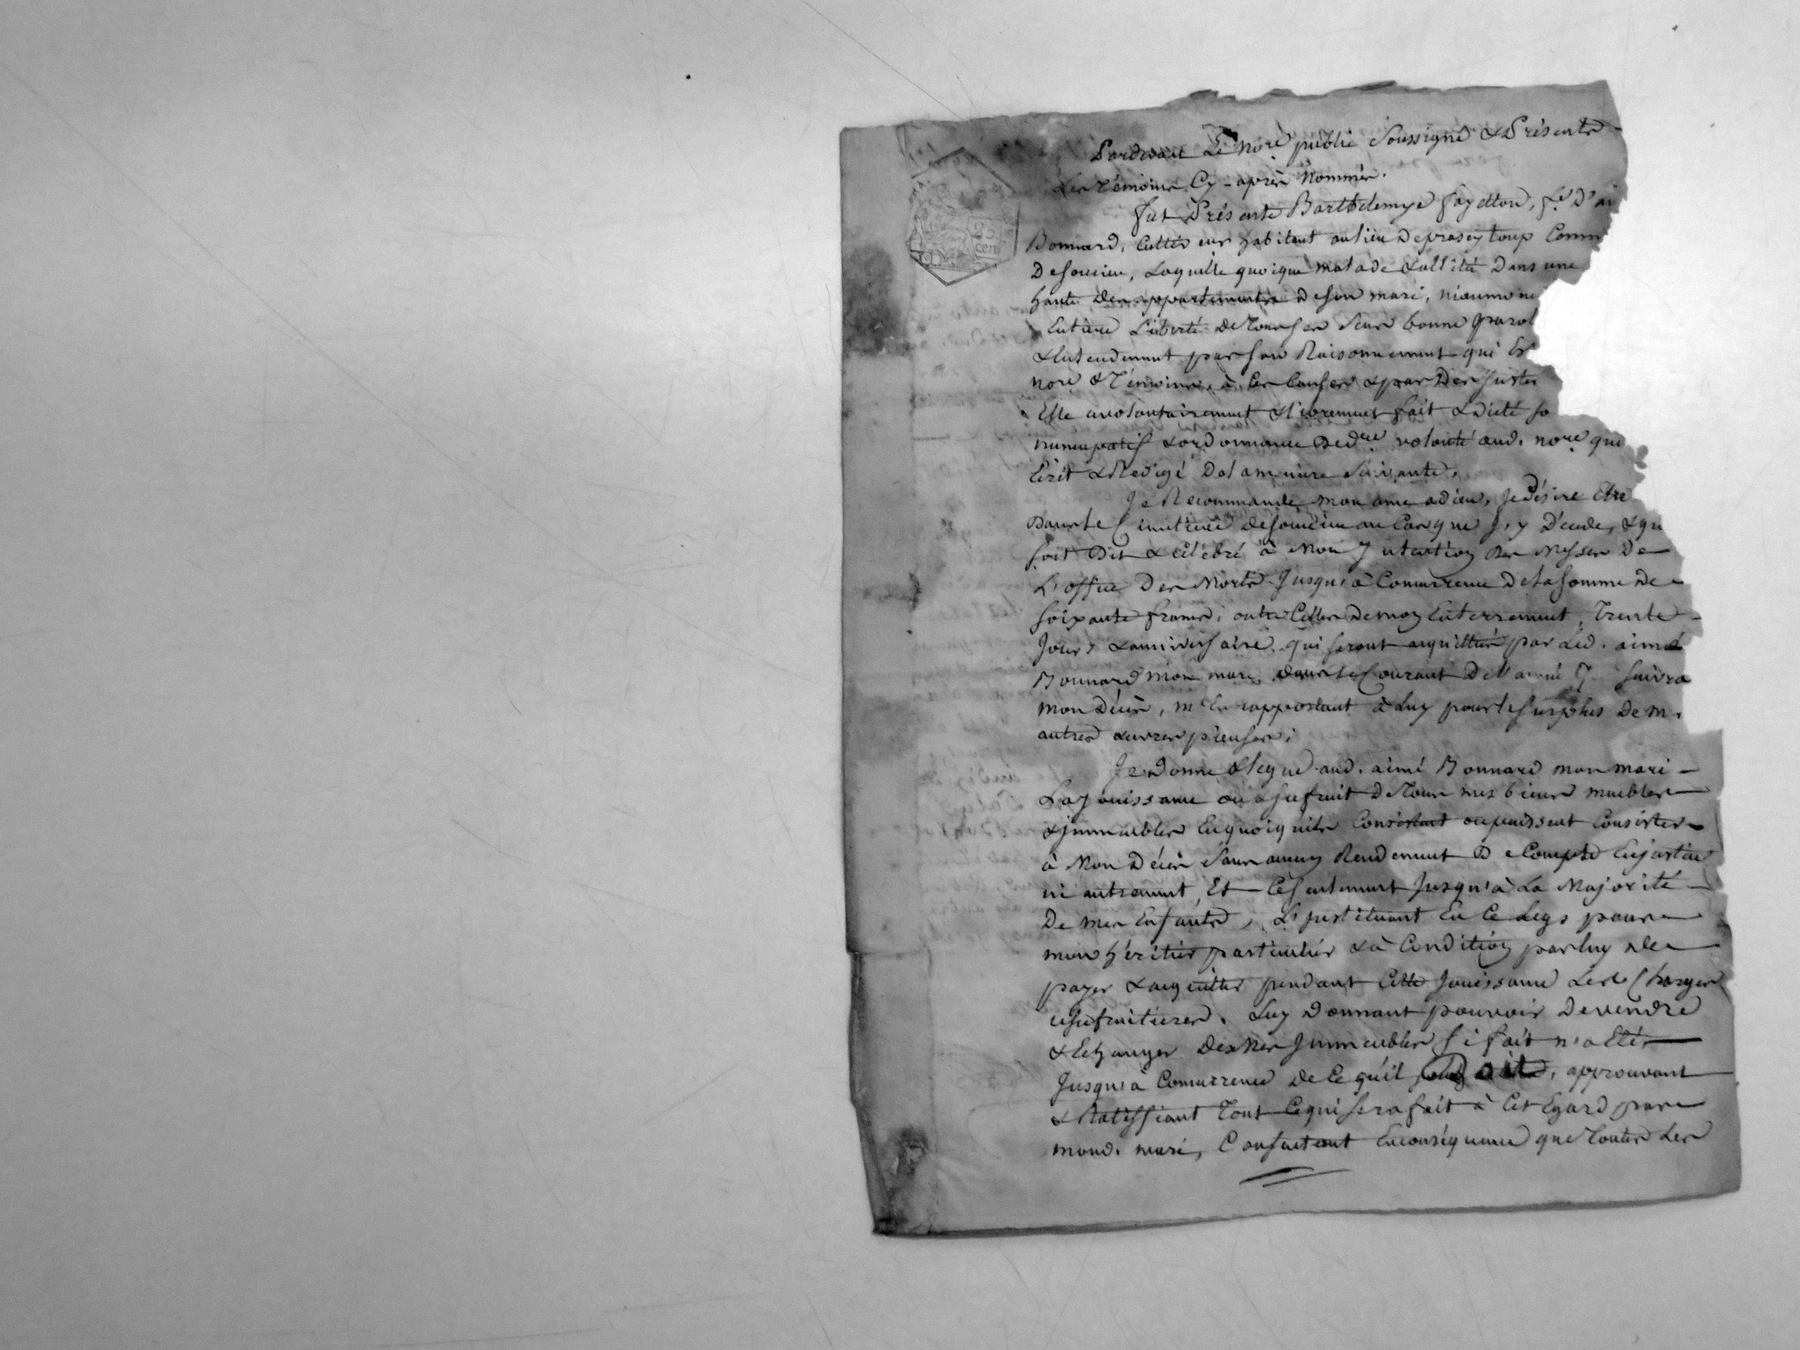 Pardevant Le Nore public Soussigné & Présents
Les témoins Cy-après Nommés.
fut Présente Barthélemye fayetton, fe D'ai
Bonnard, Cultivateur habitant au lieu de Comm
De Laquelle quoique malade & allitée Dans une
haute des appartements De Son mari, néaumoins
Entière Liberté De Tous Ses Sens bonne parol
& Entendement par Son Raisonnement qui Es
Nore & témoins, à Ces Causes & par Des Justes
Elle a volontairement & librement fait & Dicté so
nuncupatif & ordonnance De dre volonté aud. Nore qui
Ecrit & Redigé De la manière Suivante,
Je Recommande mon ame a Dieu, Je Désire Etre
Dans le Cimetière De au Cas que J'y Décède, & qu
soit Dit & Célébré à Mon Intention Des Messes De
L'office Des Morts Jusqu'à Concurrence De la Somme De
Soixante francs; outre Celles De mon Enterrement, Trente
Jours & anniversaire qui Seront acquittés par Led. aimé
Bonnard mon mari, Dans le Courant De l'année q. Suivra
mon Décès, m'En rapportant à Luy pour le Surplus De m.
autres œuvres pieuses;
Je Donne & legue aud. aimé Bonnard mon mari
La Jouissance ou usufruit De Tous mes biens meubles
& Immeubles En quoi qu'ils Consistent ou puissent Consister
à Mon Décès Sans aucun Rendement De Compte En Justice
ni autrement, Et Ce Seulement Jusqu'à La Majorité
De mes Enfants, L'Instituant En Ce Legs pour
mon héritier particulier & à Condition par luy de
payer & acquitter pendant Cette Jouissance Les Charges
usufruitieres. Luy Donnant pouvoir De vendre
& Echanger Des Mes Immeubles Si fait n'a Eté
Jusqu'à Concurrence De Ce qu'il Doit, approuvant
& Ratiffiant Tout Ce qui Sera fait à Cet Egard par
mond. mari, Consentant En conséquence que Toutes Les